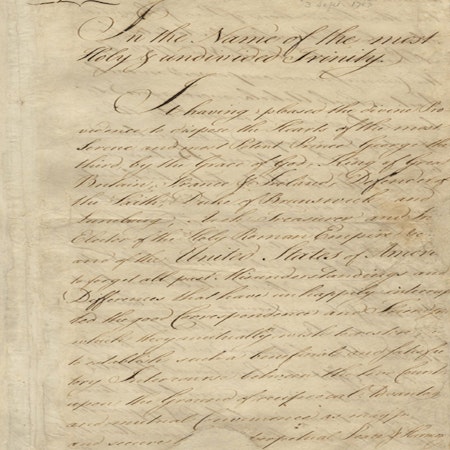 3 Sept. 1783
In the Name of the most
Holy & undivided Trinity.
It having pleased the divine Pro
vidence to dispose the Hearts of the most
Serene and most Potent Prince George the
third, by the Grace of God, King of Great
Britain, France & Ireland, Defender of
the Faith, Duke of Brunswick and
Luneburg, Arch Treasurer and
Elector of the Holy Roman Empire &c
and of the United States of Ameri
to forget all past Misunderstandings and
Differences that have unhappily interrup
ted the good Correspondence and
which they mutually wish to
to establish such a beneficial and satisfac
tory Intercourse between the two Countr
upon the Ground of reciprocal Advantag
and mutual Convenience as may
and secure perpetual Peace &